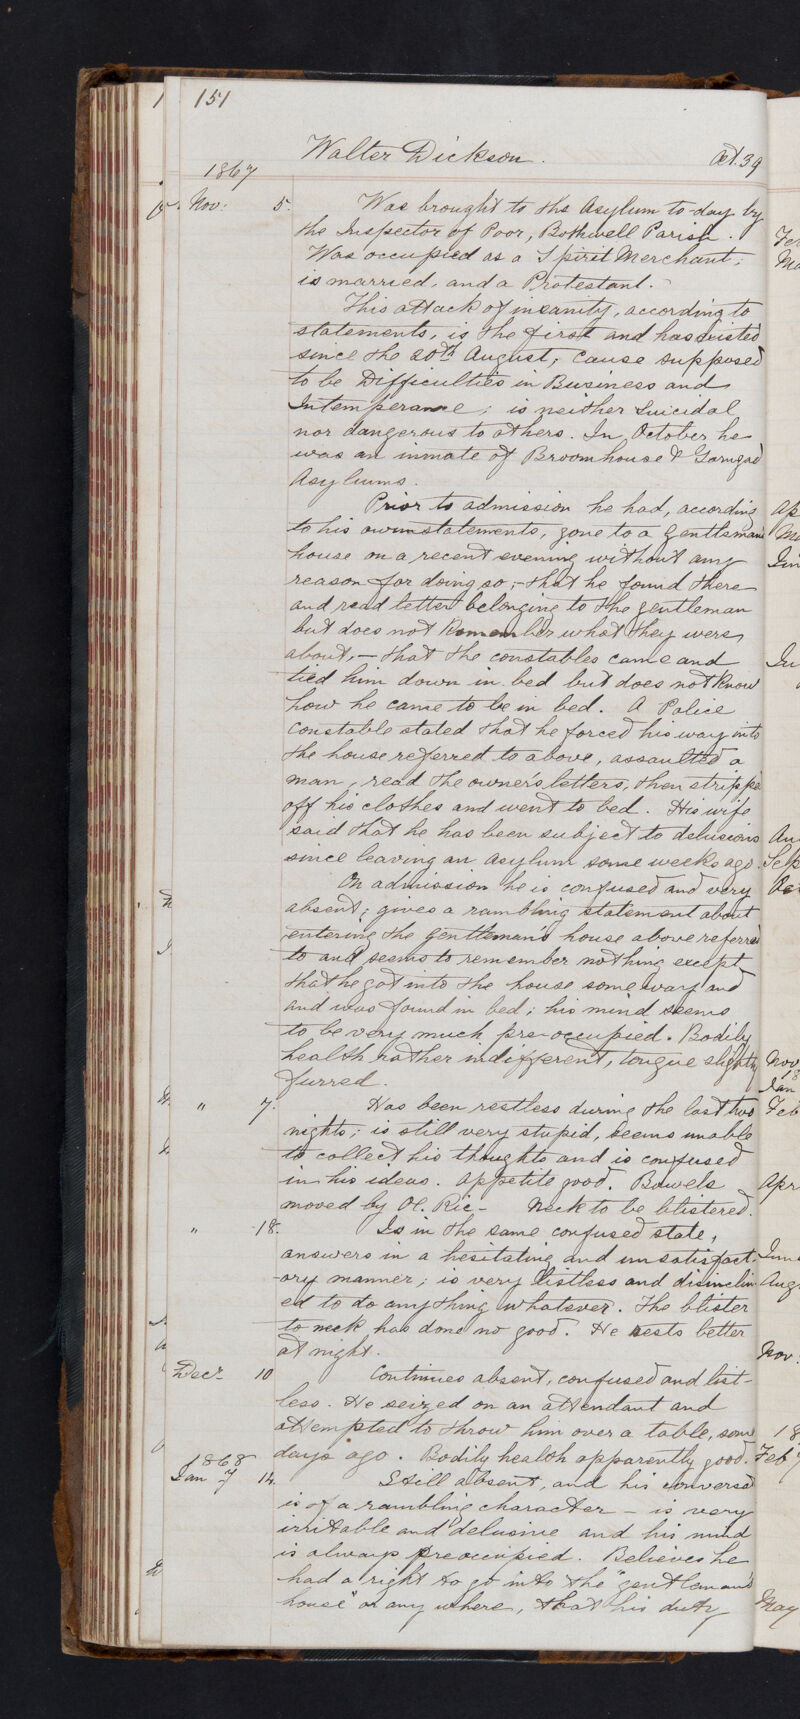 151
Walter Dickson. Æt. 39
1867
Nov: 5. Was brought to the Asylum to-day by
the Inspector of Poor, Bothwell Parish.
Was occupied as a Spirit Merchant,
is married, and a Protestant.
This attack of insanity, according to
statements, is the first and has existed
since the 20th August; cause supposed
to be Difficulties in Business and
Intemperance; is neither Suicidal
nor dangerous to others. In October he
was an inmate of Broomhouse & Garngad
Asylums.
Prior to admission he had, according
to his own statements, gone to a gentleman's
house on a recent evening without any
reason for doing so;- that he found there
and read letters belonging to the gentleman
but does not Remember what they were
about, - that the constables came and
tied him down in bed but does not know
how he came to be in bed. A Police
Constable stated that he forced his way into
the house referred to above, assaulted a
man, read the owner's letters, then stripped
off his clothes and went to bed. His wife
said that he has been subject to delusions
since leaving an asylum some weeks ago.
On admission he is confused and very
absent; gives a rambling statement about
entering the gentleman's house above referred
to and seems to remember nothing except
that he got into the house some way and
and was found in bed; his mind seems
to be very much pre-occupied. Bodily
health rather indifferent, tongue slightly
furred.
" 7. Has been restless during the last two
nights; is still very stupid, seems unable
to collect his thoughts and is confused
in his ideas. Appetite good. Bowels
moved by Ol. Ric- Neck to be blistered.
" 18. Is in the same confused state,
answers in a hesitating and unsatisfact-
-ory manner; is very listless and disinclin
ed to do anything whatever. The blister
to neck has done no good. He rests better
at night.
Decr 10 Continues absent, confused and list-
less. He seized on an attendant and
attempted to throw him over a table, some
days ago. Bodily health apparently good.
1868
Jany 14. Still absent, and his conversn
is of a rambling character - is very
irritable and delusive and his mind
is always preoccupied. Believes he
had a right to go into the "gentleman's
house" or any where, that his duty